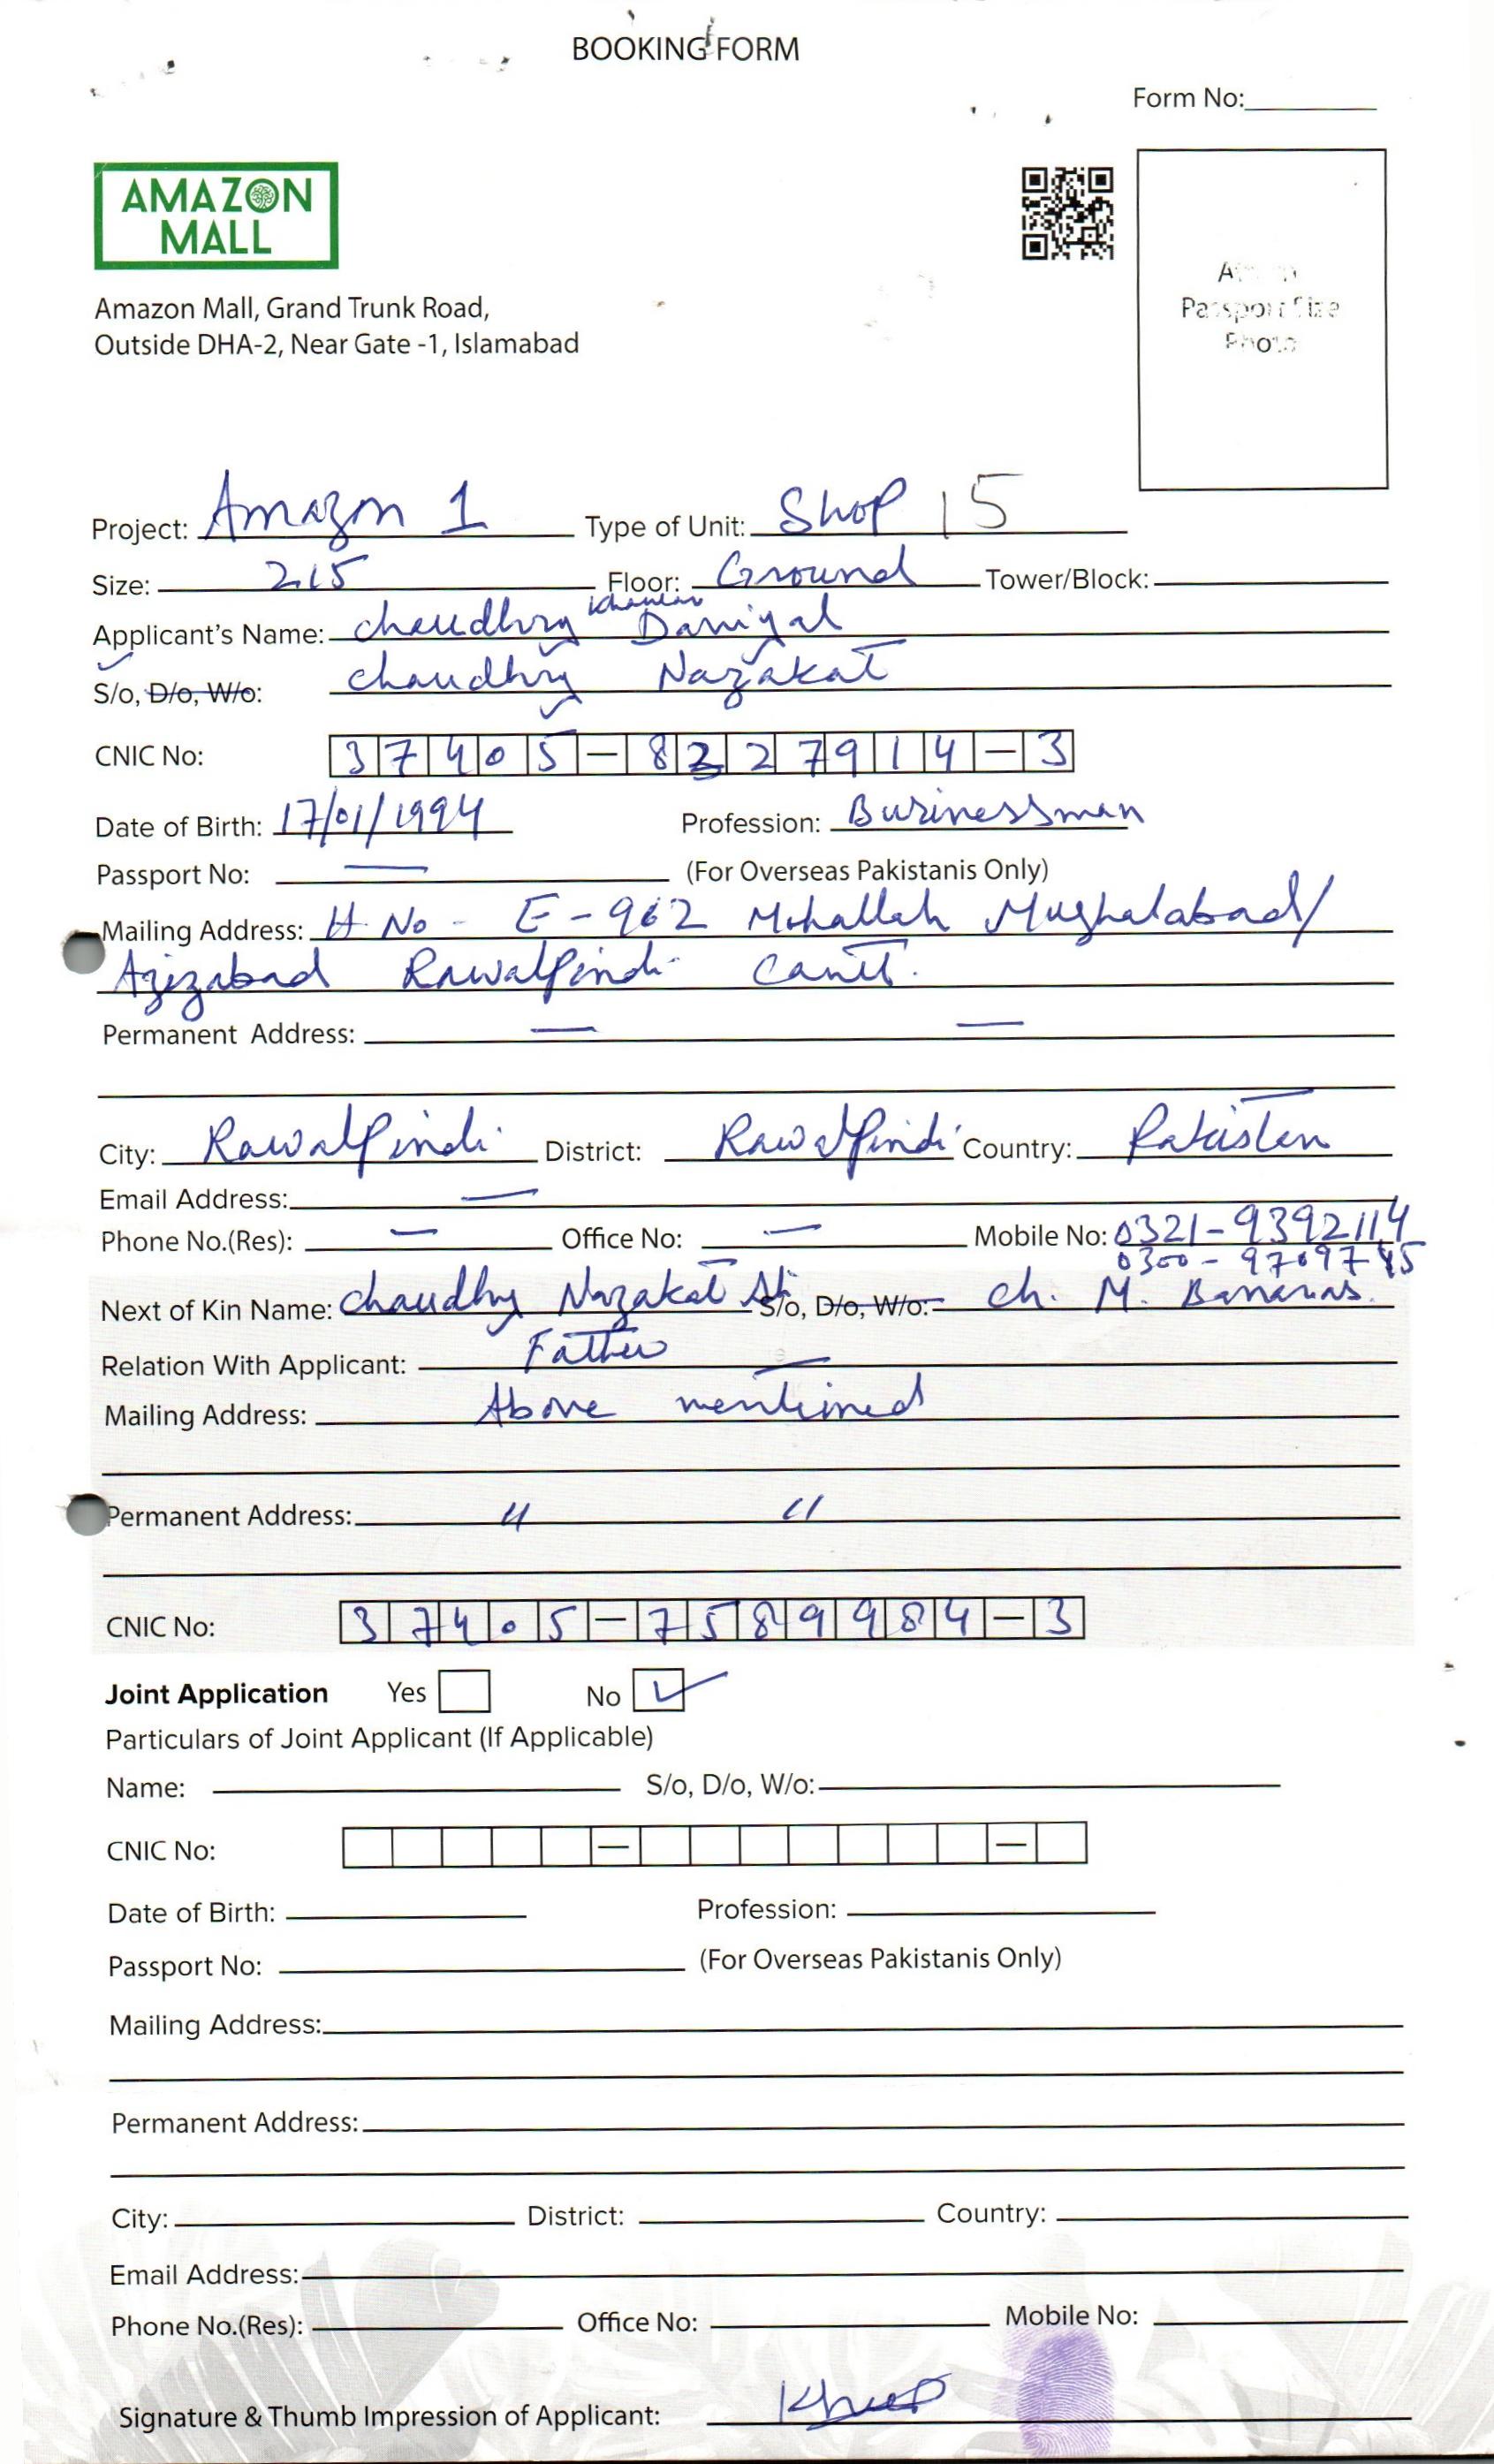 BOOKING FORM
Form No:
AMAZON
MALL
Amazon Mall, Grand Trunk Road,
Outside DHA-2, Near Gate -1, Islamabad
Passport Size
Photo
Project: Amazon 1 Type of Unit: Shop 15
Size: 215 Floor: Ground Tower/Block:
Applicant's Name: Chaudhry Khawar Daniyal
S/o, D/o, W/o: Chaudhry Nazakat
CNIC No: 37405-8227914-3
Date of Birth: 17/01/1994 Profession: Businessman
Passport No: — (For Overseas Pakistanis Only)
Mailing Address: H. No - E-962 Mohallah Mughalabad/
Azizabad Rawalpindi Cantt.
Permanent Address: — —
City: Rawalpindi District: Rawalpindi Country: Pakistan
Email Address: —
Phone No.(Res): — Office No: — Mobile No: 0321-9392114
Next of Kin Name: Chaudhry Nazakat S/o, D/o, W/o: Ch. M.
Relation With Applicant: Father
Mailing Address: Above mentioned
Permanent Address: " "
CNIC No: 37405-7589984-3
Joint Application Yes No ✓
Particulars of Joint Applicant (If Applicable)
Name: S/o, D/o, W/o:
CNIC No: — —
Date of Birth: Profession:
Passport No: (For Overseas Pakistanis Only)
Mailing Address:
Permanent Address:
City: District: Country:
Email Address:
Phone No.(Res): Office No: Mobile No:
Signature & Thumb Impression of Applicant: